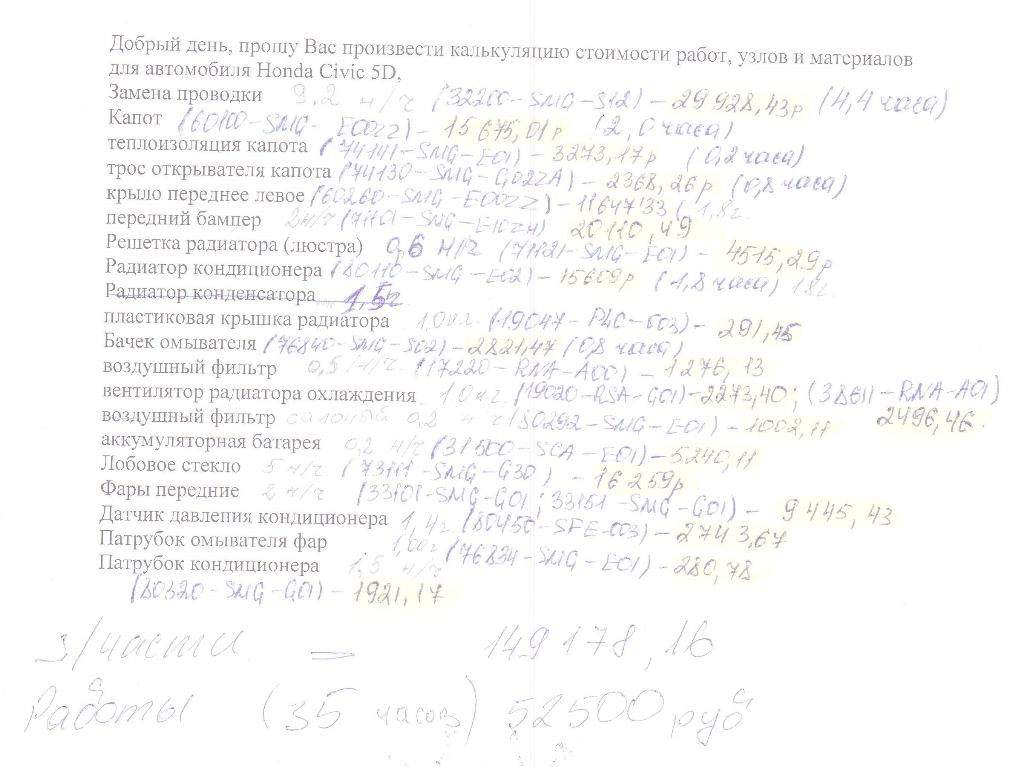 Добрый день, прошу Вас произвести калькуляцию стоимости работ, узлов и материалов
для автомобиля Honda Civic 5D,
Замена проводки 9.2 н/ч (32200-SMG-S12) – 29 928,43р (4,4 часа)
Капот (60100-SMG-E00ZZ) – 15 675,01р (2,0 часа)
теплоизоляция капота (74141-SMG-E01) – 3273,17р (0,2 часа)
трос открывателя капота (74130-SMG-G02ZA) – 2368,26р (0,8 часа)
крыло переднее левое (60260-SMG-E00ZZ) – 11647,33 (1,8 г.
передний бампер 2 н/ч (71101-SMG- 20110,49
Решетка радиатора (люстра) 0,6 н/ч (71121-SMG-E01) – 4515,29р
Радиатор кондиционера (80110-SMG-E02) – 15609р (1,8 часа) 1.8 г.
Радиатор конденсатора 1,5г
пластиковая крышка радиатора 1,0 н.г. (19047-P4C-003) – 291,45
Бачек омывателя (76840-SMG-S02) – 2821,47 (0,8 часа)
воздушный фильтр 0,5 н/ч. (17220-RNA-A00) – 1276,13
вентилятор радиатора охлаждения 1.0 н.г. (19020-RSA-G01) – 2273,40; (38611-RNA-A01)
воздушный фильтр салонный 0,2 ч (80292-SMG-E01) – 1002,11 2496,46.
аккумуляторная батарея 0,2 н/ч (31500-SCA-E01) – 5240,11
Лобовое стекло 5 н/ч (73111-SMG-G30) – 16 259р
Фары передние 2 н/ч (33101-SMG-G01; 33151-SMG-G01) – 9 445,43
Датчик давления кондиционера 1,4г. (80450-SFE-003) – 2743,67
Патрубок омывателя фар 1,00г (76834-SMG-E01) – 280,78
Патрубок кондиционера 1,5 н/ч
(80320-SMG-G01) – 1921,17
З/части = 149 178,16
Работы (35 часов) 52500 руб